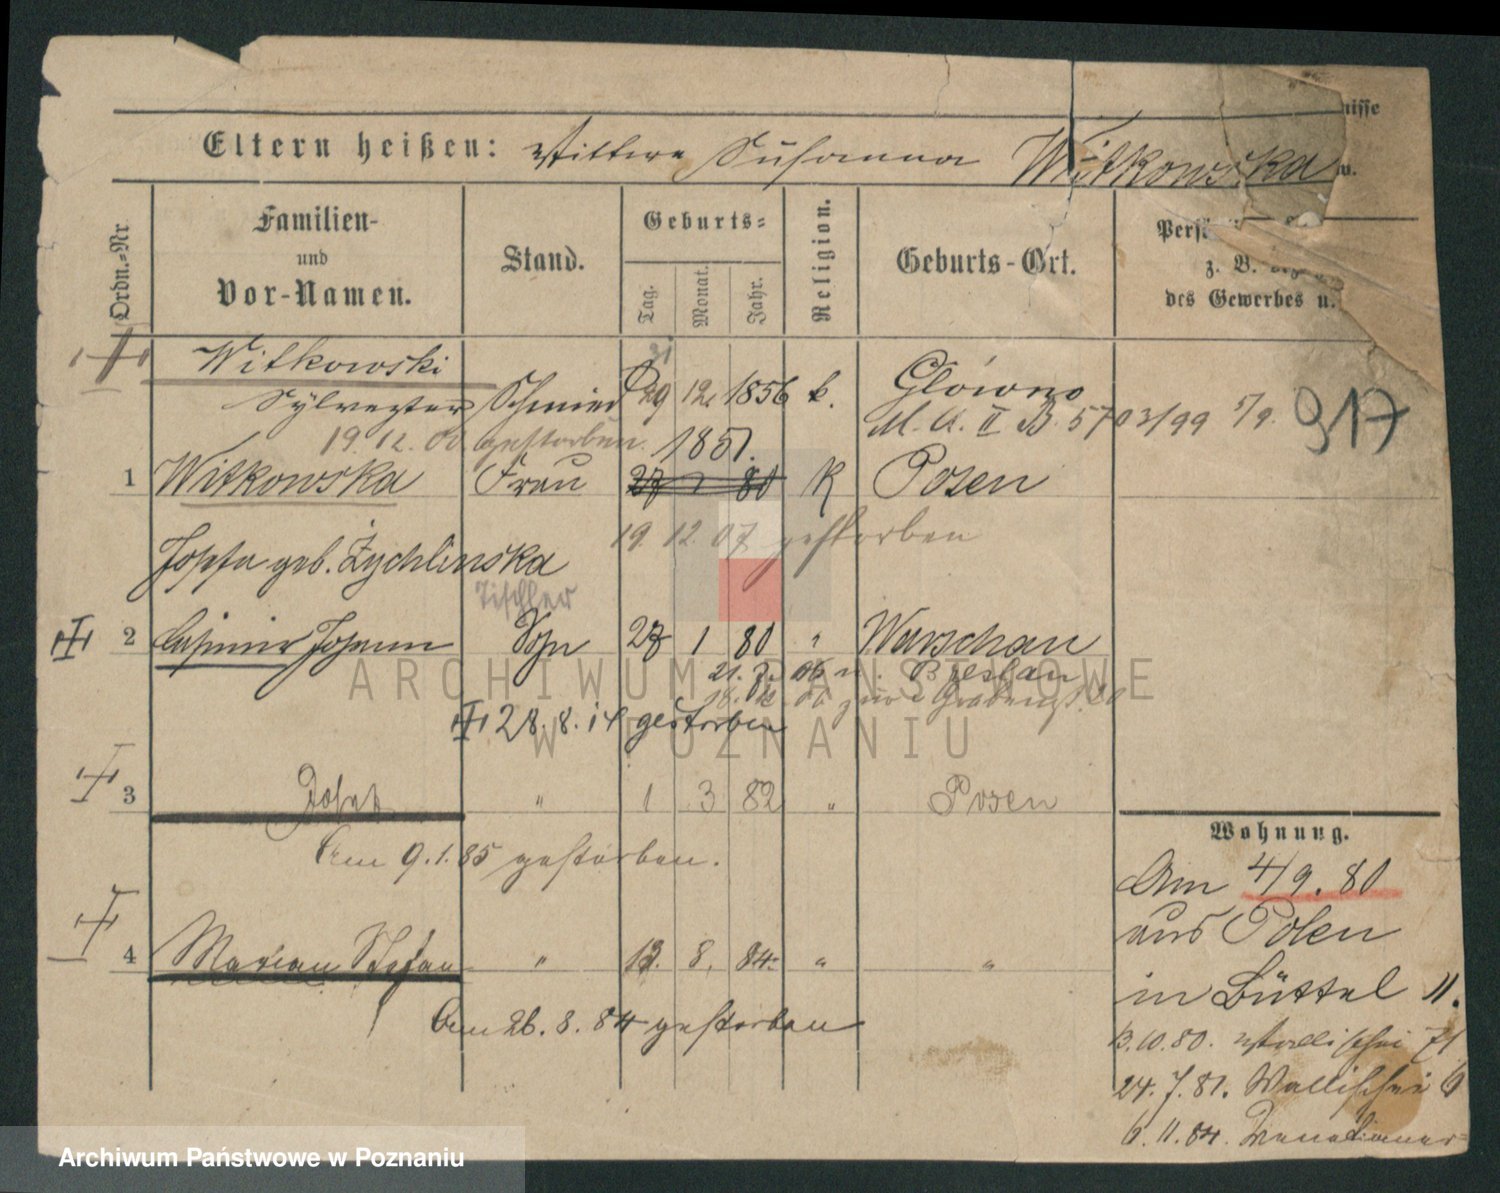 nisse
Eltern heißen: Wittwe Susanna Witkowska
w.
Ordn.-Nr
Familien-
und
Vor-Namen.
Stand.
Geburts-
Tag.
Monat.
Jahr.
Religion.
Geburts-Ort.
z. B.
des Gewerbes u.
Witkowski
31
Sylvester Schmied 29 12. 1856 k. Glówno
M. A. II B. 5703/99 5/9. 917
19.12.00 gestorben. 1851.
1 Witkowska Frau 27 1 80 K Posen
19. 12. 07 gestorben
Josefa geb. Żychlinska
Tischler
2 Casimir Johann Sohn 27 1 80 " Warschau
21. 7. 06 n. Breslau
28. 8. 14 gestorben
3 Josef " 1 3 82 " Posen
Am 9.1.85 gestorben.
4 Marian Stefan " 13. 8. 84. " "
Am 26. 8. 84 gestorben
Wohnung.
Am 4/9. 80
aus Polen
in Büttel 11.
13.10.80. Wallischei 71
24. 7. 81. Wallischei 6
6. 11. 84. Venetianer-
ARCHIWUM PAŃSTWOWE
W POZNANIU
Archiwum Państwowe w Poznaniu